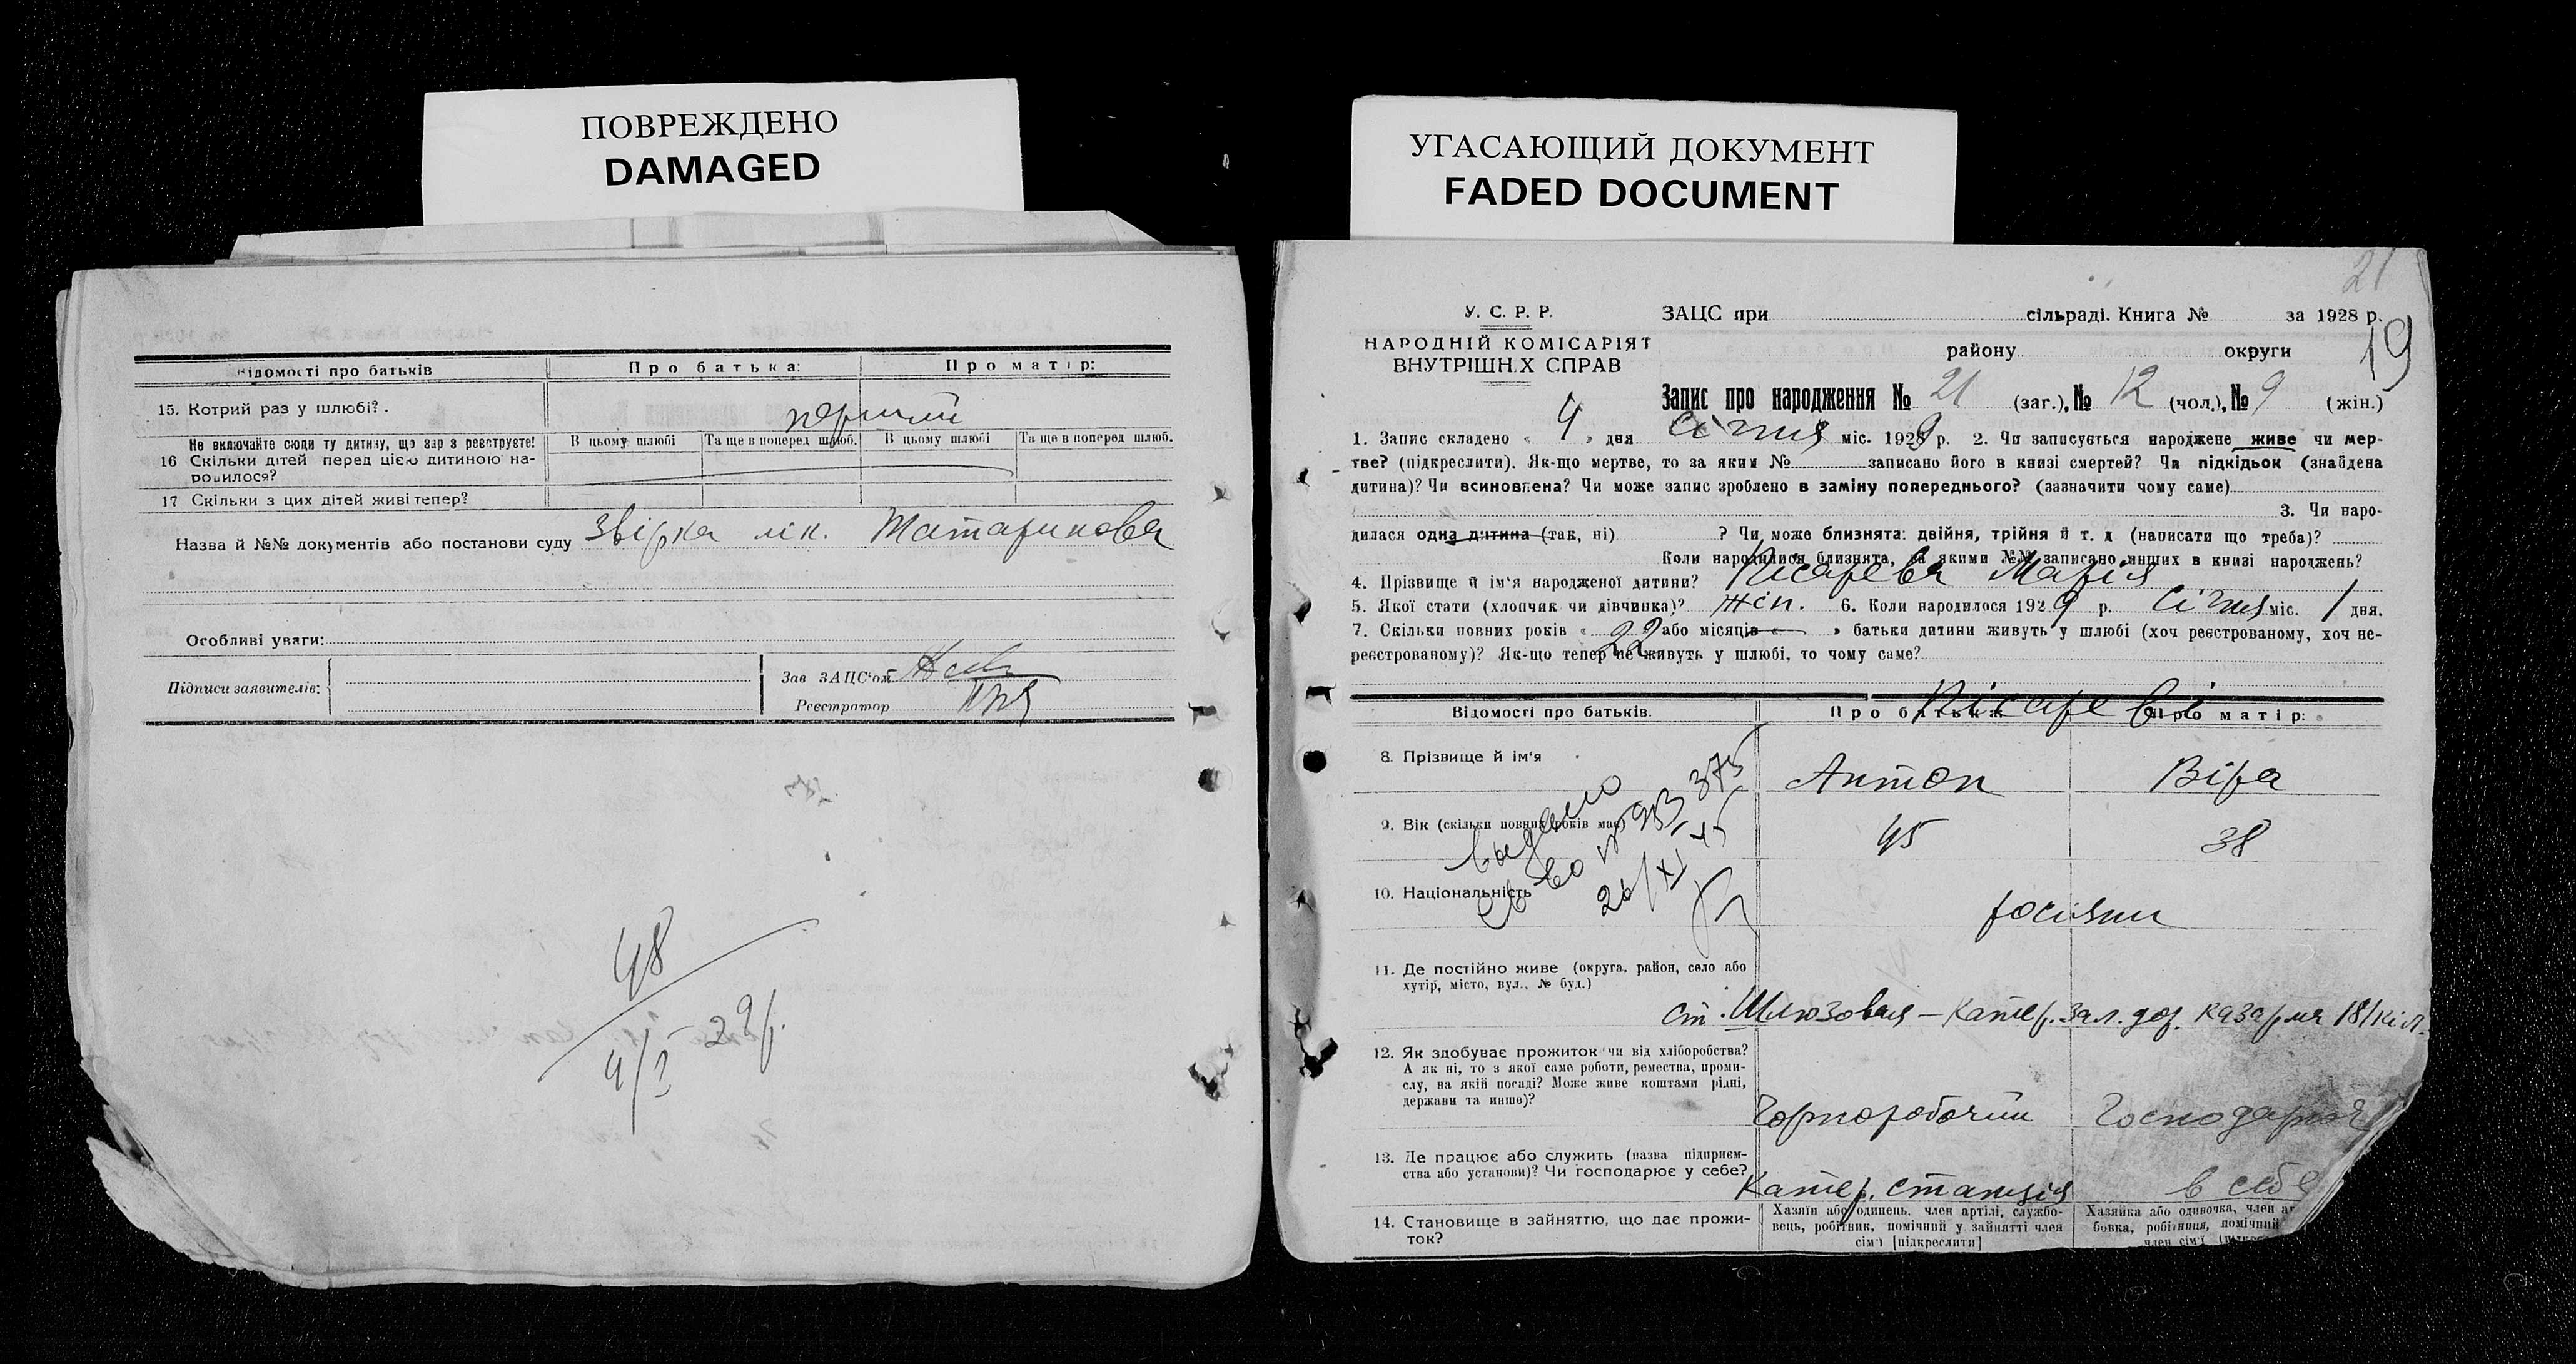 ПОВРЕЖДЕНО
DAMAGED
Відомості про батьків
Про батька:
Про матір:
15. Котрий раз у шлюбі?.
перший
Не включайте сюди ту дитину, що зараз реєструєте!
16 Скільки дітей перед цією дитиною на-
родилося?
В цьому шлюбі
Та ще в поперед шлюб.
В цьому шлюбі
Та ще в поперед шлюб.
17 Скільки з цих дітей живі тепер?
Назва й №№ документів або постанови суду
Звірка лік. Татаринова
Особливі уваги:
Підписи заявителів:
Зав ЗАЦС'ом
Реєстратор
48
4/I 29р.
УГАСАЮЩИЙ ДОКУМЕНТ
FADED DOCUMENT
21
19
У. С. Р. Р.
НАРОДНІЙ КОМІСАРІЯТ
ВНУТРІШН.Х СПРАВ
ЗАЦС при сільраді. Книга № за 1928 р.
району округи
Запис про народження № 21 (заг.), № 12 (чол.), № 9 (жін.)
1. Запис складено « 4 » дня Січня міс. 1929 р. 2. Чи записується народжене живе чи мер-
тве? (підкреслити). Як-що мертве, то за яким № записано його в книзі смертей? Чи підкідьок (знайдена
дитина)? Чи всиновлена? Чи може запис зроблено в заміну попереднього? (зазначити чому саме)
3. Чи наро-
дилася одна дитина (так, ні) ? Чи може близнята: двійня, трійня й т. д (написати що треба)?
Коли народилися близнята, за якими №№ записано инших в книзі народжень?
4. Прізвище й ім'я народженої дитини? Пісарева Марія
5. Якої стати (хлопчик чи дівчинка)? жін. 6. Коли народилося 1929 р. Січня міс. 1 дня.
7. Скільки повних років « 22 або місяців « — » батьки дитини живуть у шлюбі (хоч реєстрованому, хоч не-
реєстрованому)? Як-що тепер не живуть у шлюбі, то чому саме?
Відомості про батьків.
Про батька
Про матір:
Пісареві
8. Прізвище й ім'я
Антон
Віра
9. Вік (скільки повних років має)
45
38
выдано
св во
375
26/XI 45
10. Національність
росіяни
11. Де постійно живе (округа, район, село або
хутір, місто, вул., № буд.)
ст. Шлюзовая – Катер. зал. дор. казарма 181 кіл.
12. Як здобуває прожиток чи від хліборобства?
А як ні, то з якої саме роботи, ремества, проми-
слу, на якій посаді? Може живе коштами рідні,
держави та инше)?
Чорноробочий
Господарка
13. Де працює або служить (назва підприєм-
ства або установи)? Чи господарює у себе?
Катер. станція
в себе
14. Становище в зайняттю, що дає прожи-
ток?
Хазяїн або одинець, член артілі, службо-
вець, робітник, помічний у зайнятті член
сім'ї [підкреслити]
Хазяйка або одиночка, член ар
бовка, робітниця, помічний
член сім'ї